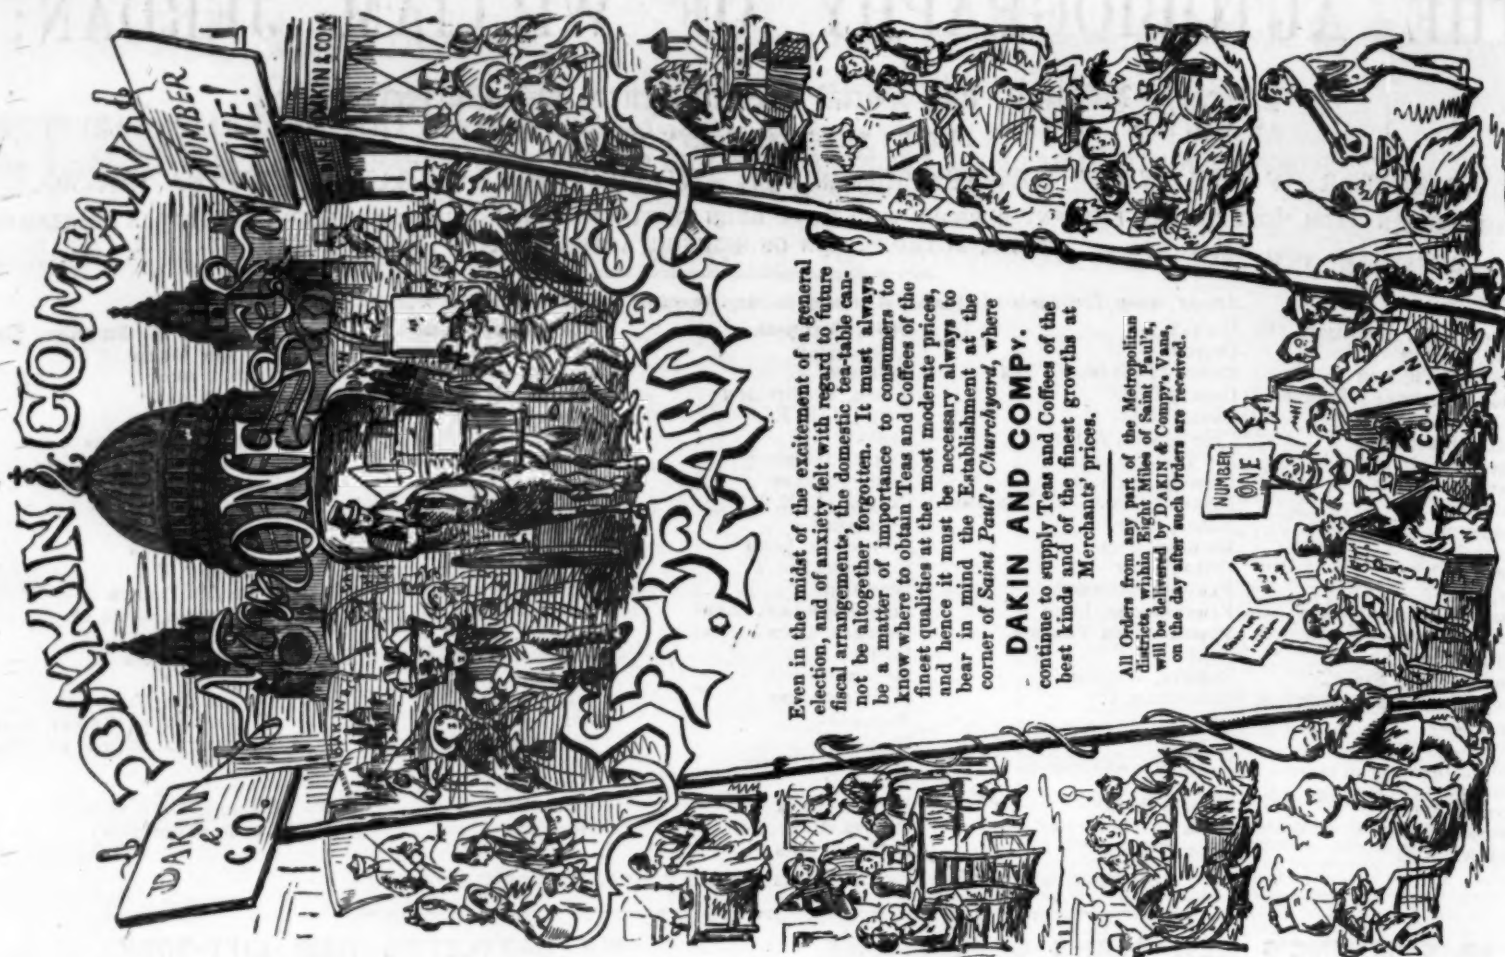 DAKIN COMPANY
DAKIN
&
CO.
NUMBER
ONE!
ONE
DAKIN & COM
NUMBER ONE
ST PAUL'S
Even in the midst of the excitement of a general
election, and of anxiety felt with regard to future
fiscal arrangements, the domestic tea-table can-
not be altogether forgotten. It must always
be a matter of importance to consumers to
know where to obtain Teas and Coffees of the
finest qualities at the most moderate prices,
and hence it must be necessary always to
bear in mind the Establishment at the
corner of Saint Paul's Churchyard, where
DAKIN AND COMPY.
continue to supply Teas and Coffees of the
best kinds and of the finest growths at
Merchants' prices.
All Orders from any part of the Metropolitan
districts, within Eight Miles of Saint Paul's,
will be delivered by DAKIN & Compy's Vans,
on the day after such Orders are received.
NUMBER
ONE
DAKIN
CO.